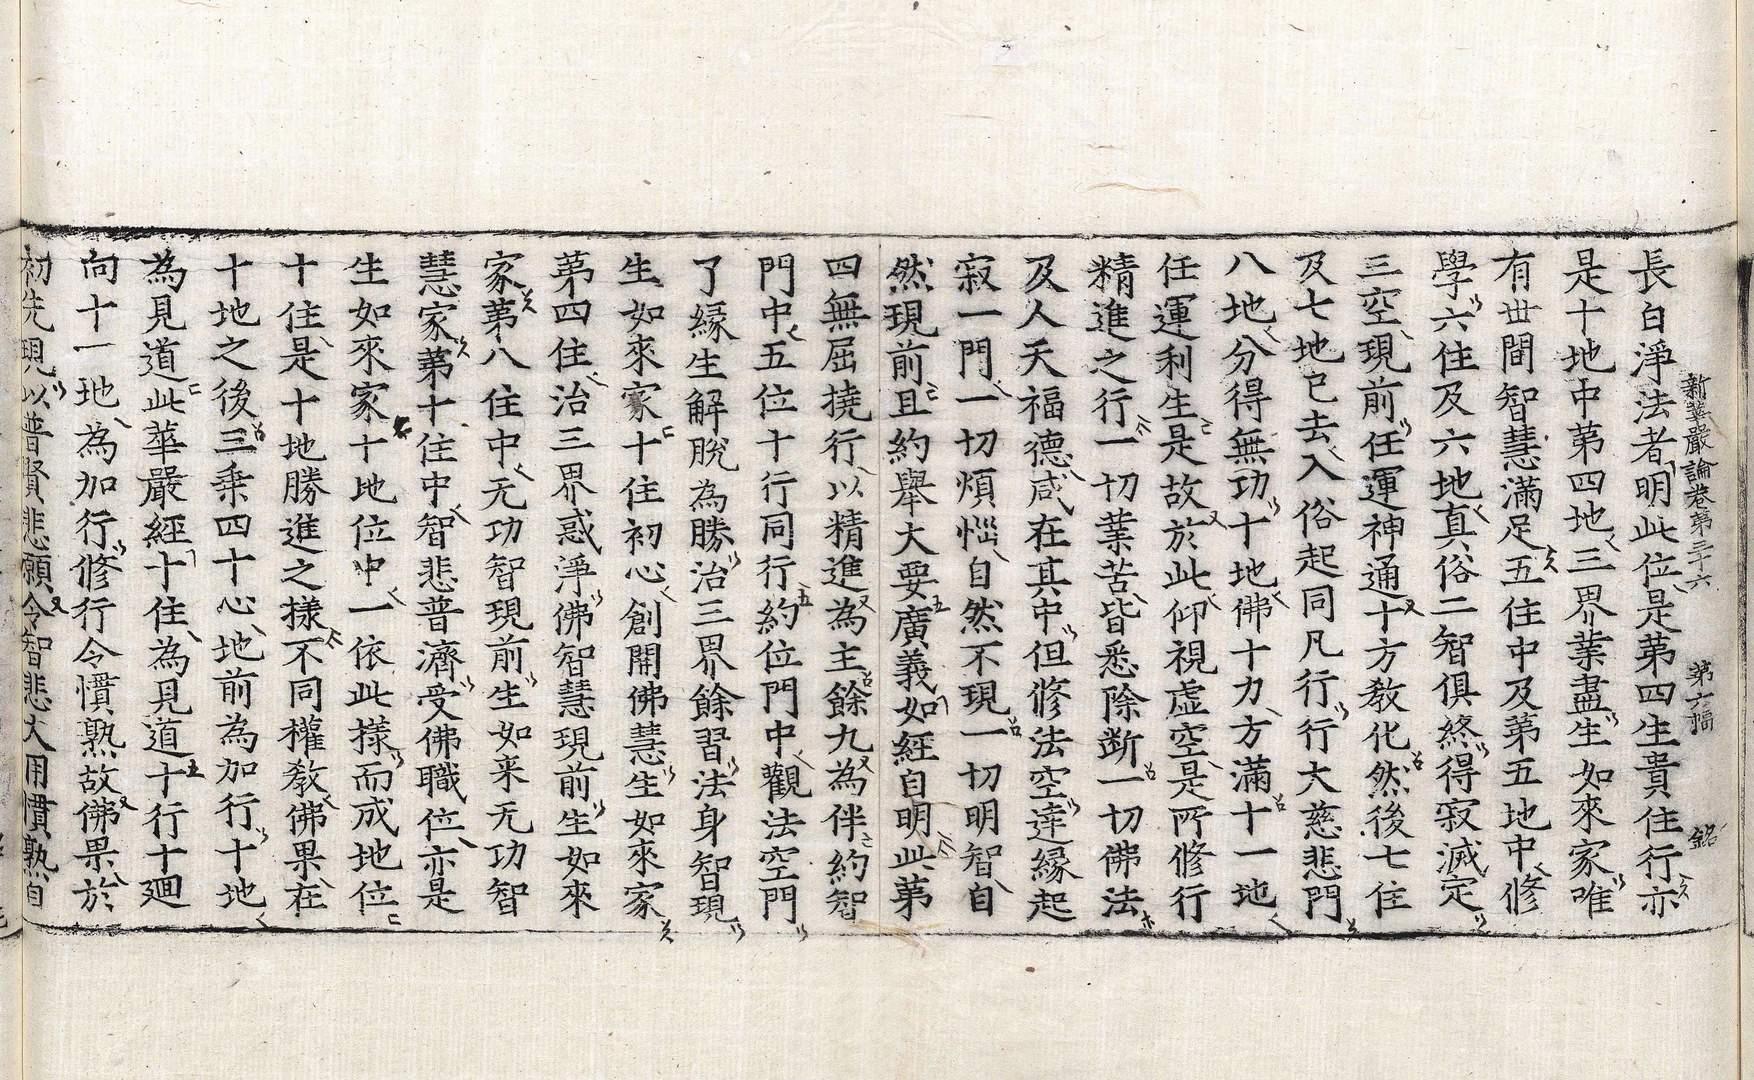 新華嚴論卷第三十六 第六幅 銘
長白淨法者明此位是第四生貴住行亦
是十地中第四地三界業盡生如來家唯
有世間智慧滿足五住中及第五地中修
學六住及六地真俗二智俱終得寂滅定
三空現前任運神通十方教化然後七住
及七地已去入俗起同凡行行大慈悲門
八地分得無功十地佛十力方滿十一地
任運利生是故於此仰視虛空是所修行
精進之行一切業苦皆悉除斷一切佛法
及人天福德咸在其中但修法空達緣起
寂一門一切煩惱自然不現一切明智自
然現前且約舉大要廣義如經自明此第
四無屈撓行以精進為主餘九為伴約智
門中五位十行同行約位門中觀法空門
了緣生解脫為勝治三界餘習法身智現
生如來家十住初心創開佛慧生如來家
第四住治三界惑淨佛智慧現前生如來
家第八住中无功智現前生如来无功智
慧家第十住中智悲普濟受佛職位亦是
生如來家十地位中一依此樣而成地位
十住是十地勝進之樣不同權教佛果在
十地之後三乘四十心地前為加行十地
為見道此華嚴經十住為見道十行十廻
向十一地為加行修行令慣熟故佛果於
初先現以普賢悲願令智悲大用慣熟自